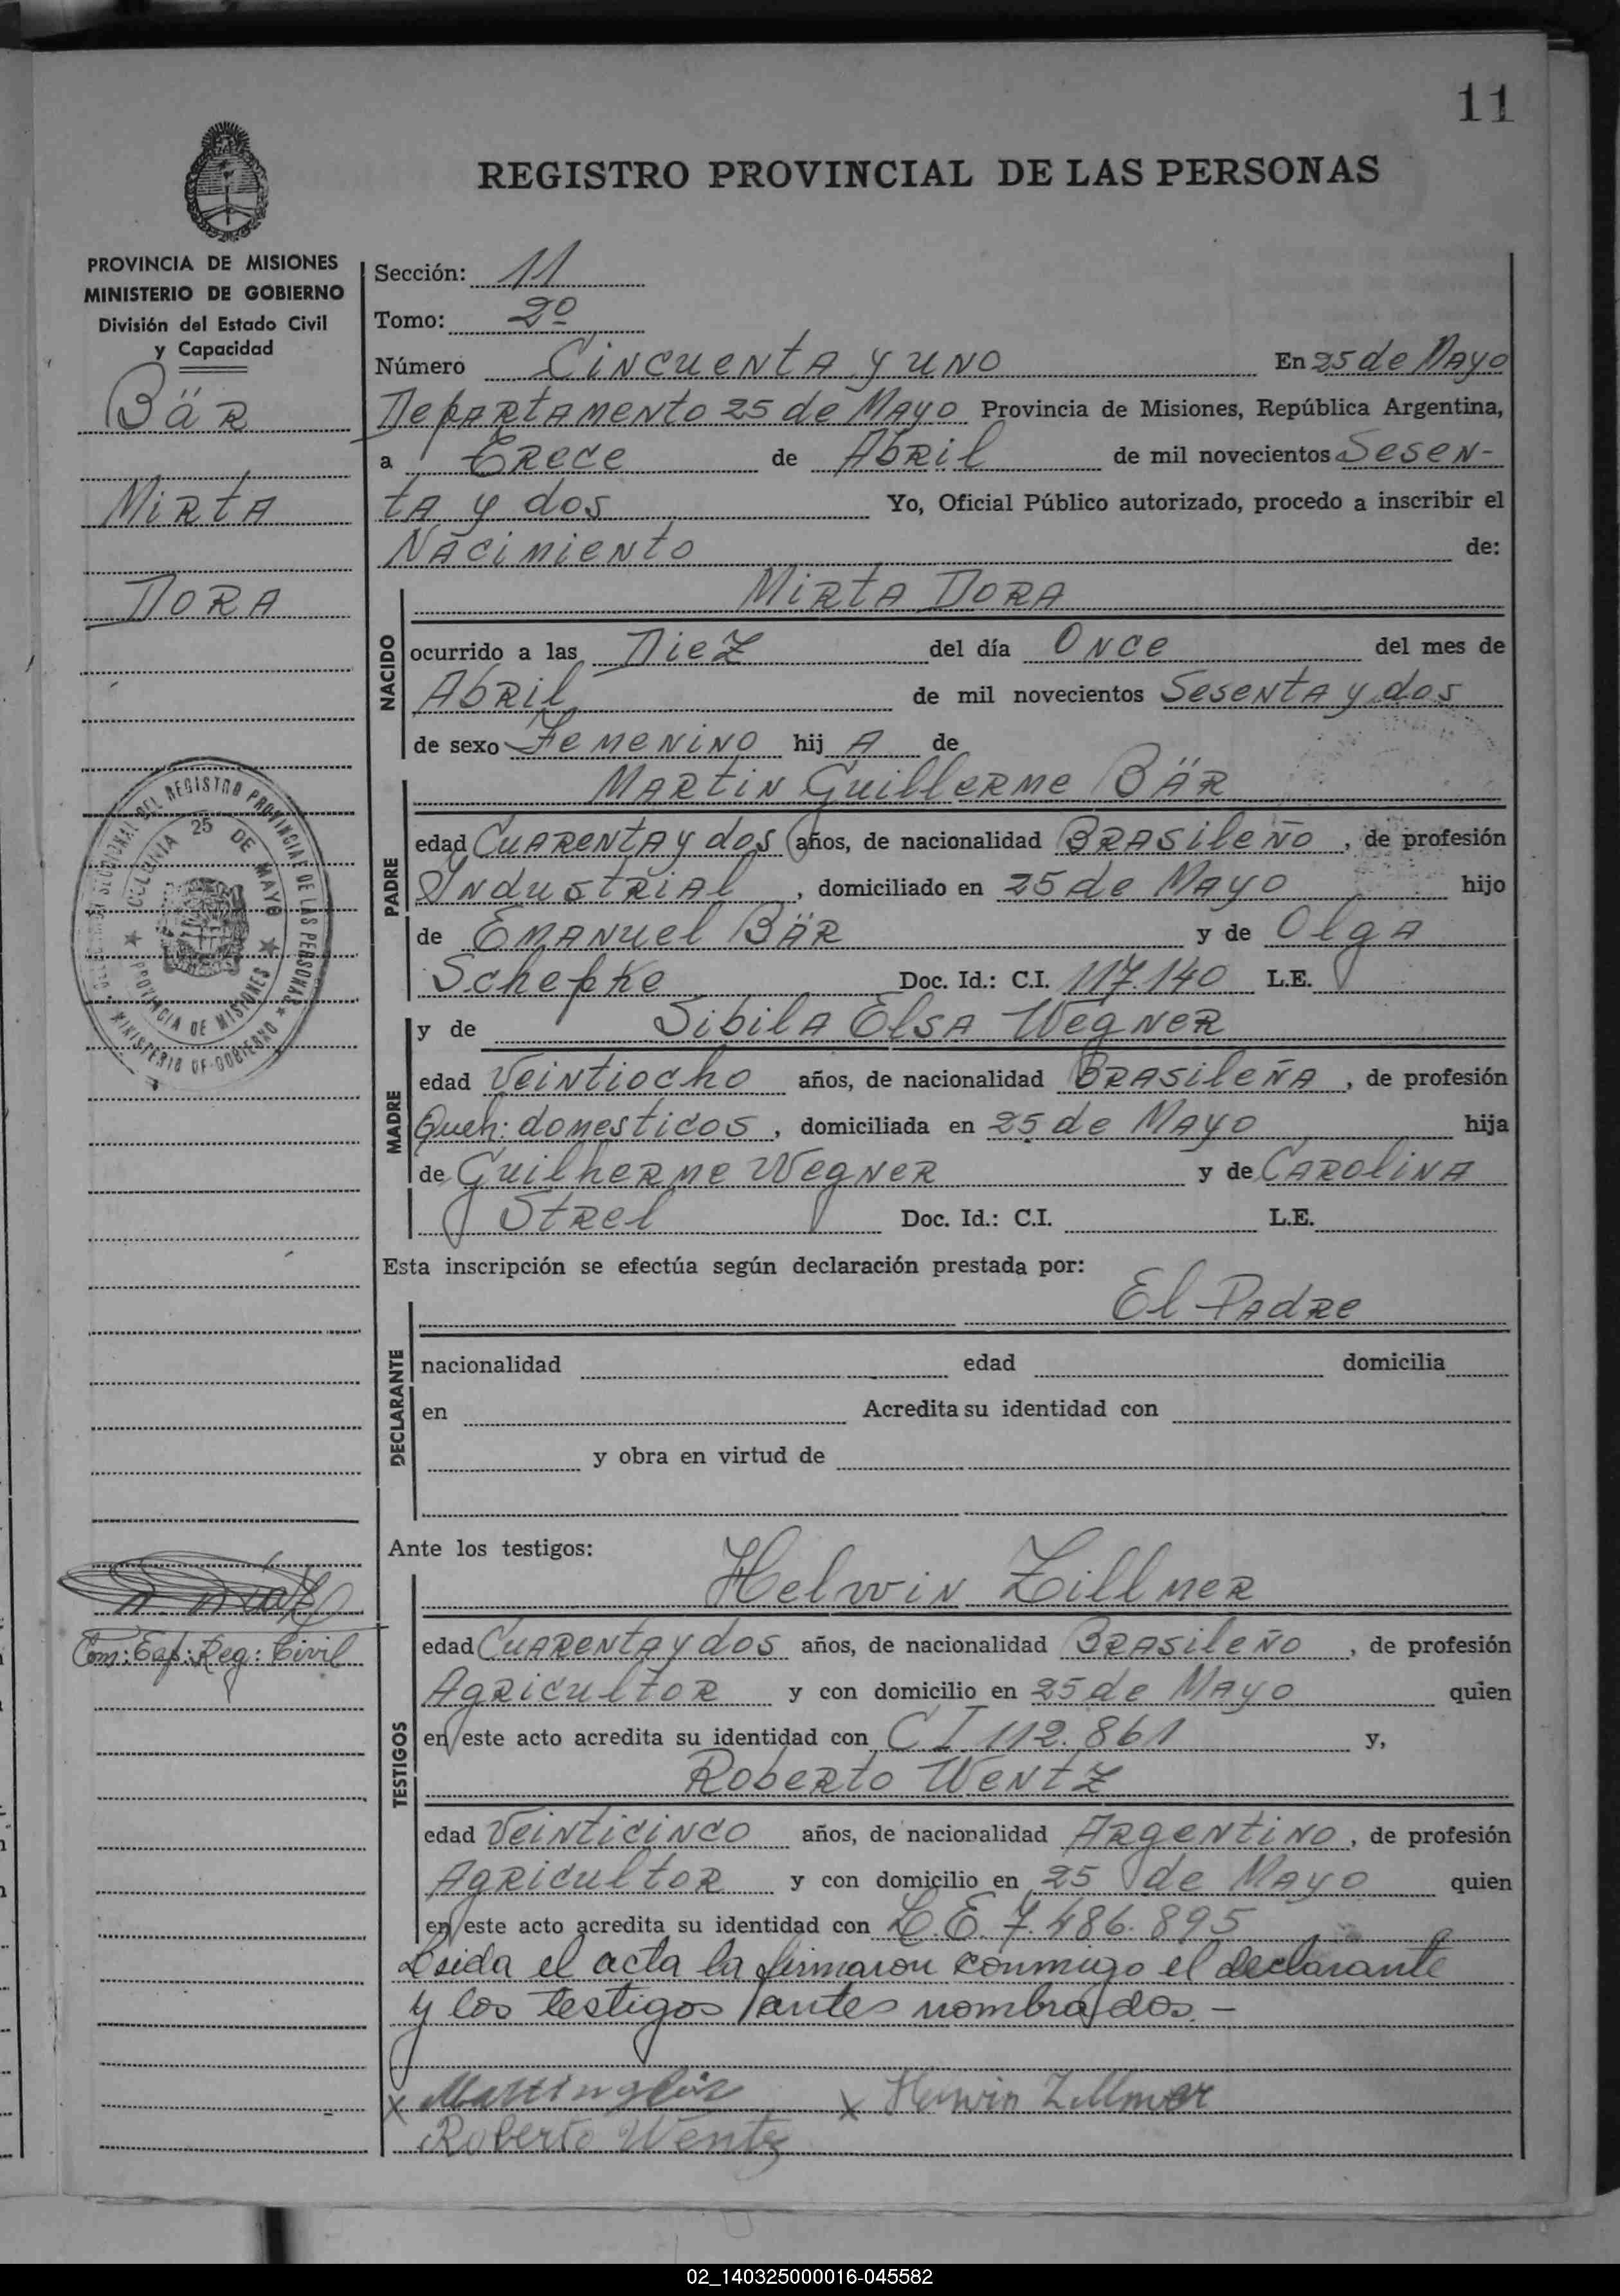 11
REGISTRO PROVINCIAL DE LAS PERSONAS
PROVINCIA DE MISIONES
MINISTERIO DE GOBIERNO
División del Estado Civil
y Capacidad
BäR
MiRtA
DORA
DEL REGISTRO PROVINCIAL DE LAS PERSONAS
COLONIA 25 DE MAYO
PROVINCIA DE MISIONES
MINISTERIO DE GOBIERNO
Com: Esp: Reg: Civil
Sección: 11
Tomo: 2º
Número CiNCUeNtA y UNO En 25 de MAyo
DepARtAMeNto 25 de MAyo Provincia de Misiones, República Argentina,
a tRece de AbRil de mil novecientos SeseN-
tA y dos Yo, Oficial Público autorizado, procedo a inscribir el
NAciMieNto de:
MiRtA DORA
NACIDO
ocurrido a las DieZ del día ONce del mes de
AbRil de mil novecientos SeseNtA y dos
de sexo FeMeNiNO hij A de
MARtiN GuilleRMe BÄR
PADRE
edad CuAReNtA y dos años, de nacionalidad BRASileÑo, de profesión
INdustRiAl, domiciliado en 25 de MAyo hijo
de EMANuel BÄR y de OlgA
Schepke Doc. Id.: C.I. 117.140 L.E.
y de SibilA ElsA WegNeR
MADRE
edad VeiNtiocho años, de nacionalidad BRASileÑA, de profesión
Queh: domesticos, domiciliada en 25 de MAyo hija
de GuilheRMe WegNeR y de CAROliNA
StRel Doc. Id.: C.I. L.E.
Esta inscripción se efectúa según declaración prestada por:
El PAdRe
DECLARANTE
nacionalidad edad domicilia
en Acredita su identidad con
y obra en virtud de
Ante los testigos:
HelwiN ZillMeR
TESTIGOS
edad CuAReNtA y dos años, de nacionalidad BRASileÑo, de profesión
AgRicultoR y con domicilio en 25 de MAyo quien
en este acto acredita su identidad con C I 112.861 y,
RobeRto WeNtZ
edad VeiNticiNco años, de nacionalidad ARgeNtiNo, de profesión
AgRicultoR y con domicilio en 25 de MAyo quien
en este acto acredita su identidad con L.E. 7.486.895
Leida el acta la firmaron conmigo el declarante
y los testigos antes nombrados.-
x x Herwin Zillmer
Roberto Wentz
02_140325000016-045582